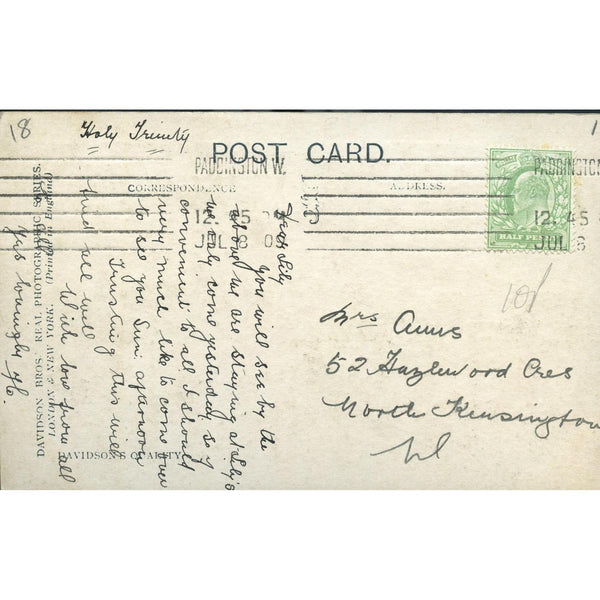 18
Holy Trinity
POST CARD.
PADDINGTON W.
12.45
JUL 8 09
PADDINGTON
12.45
JUL 8
CORRESPONDENCE
ADDRESS.
HALF PENNY
Dear Lily
You will see by the
above we are staying at Lily's
we only come yesterday so if
convenient to all I should
very much like to come over
to see you Sun. afternoon
Trusting this will
find all well
With love from all
Yrs lovingly
DAVIDSON BROS.' REAL PHOTOGRAPHIC SERIES.
LONDON & NEW YORK.
(Printed in England)
DAVIDSON'S QUALITY
Mrs Anns
52 Hazlewood Cres
North Kensington
W
10/
1